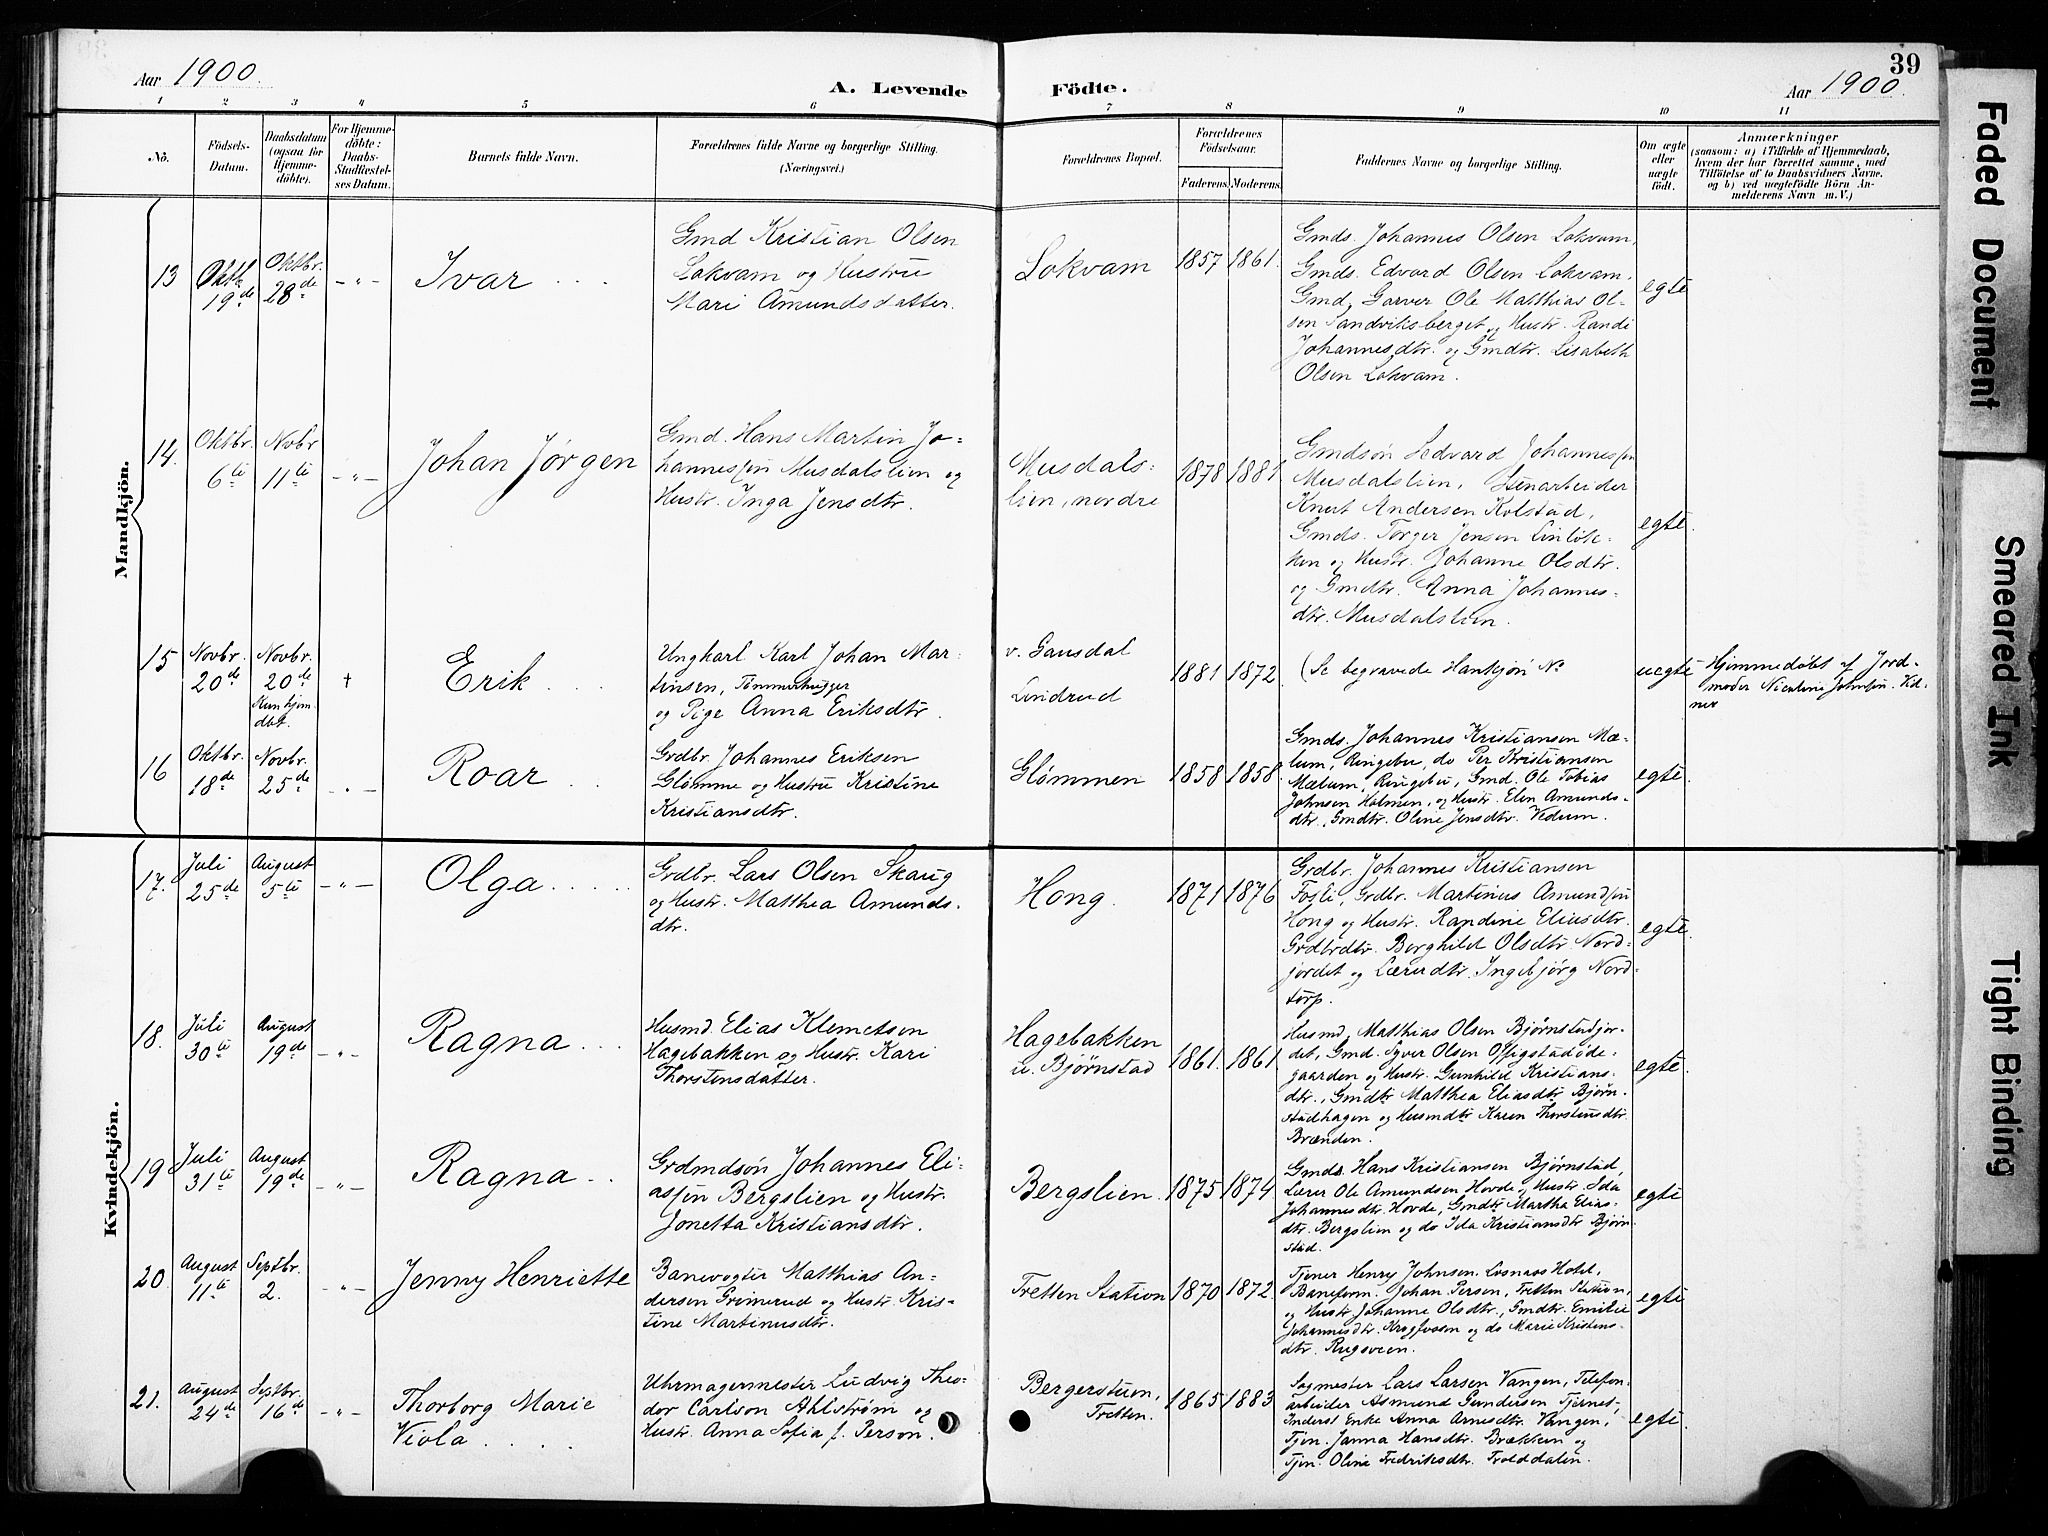 39
Aar 1900.
A. Levende Födte.
Aar 1900.
1 2 3 4 5 6 7 8 9 10 11
No.
Födsels-
Datum.
Daabsdatum
(ogsaa for
Hjemme-
döbte).
For Hjemme-
döbte:
Daabs-
Stadfæstel-
ses Datum.
Barnets fulde Navn.
Forældrenes fulde Navne og borgerlige Stilling.
(Næringsvei.)
Forældrenes Bopæl.
Forældrenes
Födselsaar.
Faderens. Moderens.
Faddernes Navne og borgerlige Stilling.
Om ægte
eller
uægte
födt.
Anmærkninger
(saasom: a) i Tilfælde af Hjemmedaab,
hvem der har forrettet samme, med
Tilföielse af to Daabsvidners Navne,
og b) ved uægtefödte Börn An-
melderens Navn m.V.)
Mandkjön.
13
Oktb.
19de
Oktbr.
28de
-"-
Ivar
Gmd Kristian Olsen
Lokvam og Hustru
Mari Amundsdatter.
Lokvam
1857 1861.
Gmds. Johannes Olsen Lokvam,
Gmds. Edvard Olsen Lokvam,
Gmd. Garver Ole Matthias Ol-
sen Sandviksberget og Hustr. Randi
Johannesdtr. og Gmdtr. Lisabeth
Olsen Lokvam.
egte
14.
Oktbr.
6te
Novbr
11te
-"-
Johan Jørgen
Gmd. Hans Martin Jo-
hannessen Musdalslien og
Hustr. Inga Jensdtr.
Musdals-
lien, nordre
1878 1881.
Gmdsøn Sedvard Johannessen
Musdalslien, Stenarbeider
Knut Andersen Kolstad,
Gmds. Torger Jensen Linløk-
ken og Hustr. Johanne Olsdtr.
og Gmdtr. Anna Johannes-
dtr. Musdalslien.
egte.
15
Novbr.
20de
Novbr.
20de
Kun hjem
dbt.
†
Erik
Ungkarl Karl Johan Mar-
tinsen, Tømmerhugger
og Pige Anna Eriksdtr.
v. Gausdal
Lindrud
1881 1872
(Se begravede Hankjøn No
uegte
Hjemmedøbt af Jord-
moder Nicoline Johnsen. Vid-
ner
16
Oktbr.
18de
Novbr.
25de
-"-
Roar
Grdbr. Johannes Eriksen
Glømme og Hustru Kristine
Kristiansdtr.
Glømmen
1858 1858.
Gmds. Johannes Kristiansen Mæ-
lum, Ringebu, do Per Kristiansen
Mælum, Ringebu, Gmd. Ole Tobias
Johnsen Holmen, og Hustr. Elen Amunds-
dtr., Gmdtr. Oline Jensdtr. Vedum.
egte.
Kvindekjön.
17.
Juli
25de
August
5te
-"-
Olga
Grdbr. Lars Olsen Skaug
og Hustr. Matthea Amunds-
dtr.
Hong.
1871 1876
Grdbr. Johannes Kristiansen
Fosli, Grdbr. Martinus Amundsen
Hong og Hustr. Randine Eliasdtr.
Grdbrdtr. Borghild Olsdtr. Nord-
jordet og Lærerdtr. Ingebjørg Nord-
torp.
egte.
18.
Juli
30te
August
19de
-"-
Ragna
Husmd. Elias Klemetsen
Hagebakken og Hustr. Kari
Thorstensdatter.
Hagebakken
u. Bjørnstad
1861. 1861.
Husmd. Matthias Olsen Bjørnstadjor-
det, Gmd. Syver Olsen Offigstadøde-
gaarden og Hustr. Gunhild Kristians-
dtr., Gmdtr Matthea Eliasdtr. Bjørn-
stadhagen og Husmdtr Karen Thorstensdtr.
Brænden.
egte.
19
Juli
31te
August
19de
-"-
Ragna
Grdmdsøn Johannes Eli-
assen Bergslien og Hustr.
Jonetta Kristiansdtr.
Bergslien.
1875 1874
Gmds. Hans Kristiansen Bjørnstad,
Lærer Ole Amundsen Hovde og Hustr. Ida
Johannesdtr. Hovde, Gmdtr Martha Elias-
dtr. Bergslien og do Ida Kristiansdtr Bjørn-
stad.
egte
20
August
11te
Septbr.
2.
-"-
Jenny Henriette
Banevogter Matthias An-
dersen Grimerud og Hustr. Kris-
tine Martinusdtr.
Tretten Station
1870 1872.
Tjener Henry Johnsen. Losnaos Hotel,
Baneform. Johan Persen, Tretten Station,
og Hustr. Johanne Olsdtr., Gmdtr. Emilie
Johannesdtr. Krogfossen og do Marie Kristens-
dtr. Rugsveen.
egte
21.
August
24de
Septbr.
16de
-"-
Thorborg Marie
Viola
Uhrmagermester Ludvig Theo-
dor Carlson Ahlstrøm og
Hustr. Anna Sofia f. Person.
Bergerstuen,
Tretten.
1865 1883
Sagmester Lars Larsen Vangen, Telefon-
arbeider Asmund Gundersen Tjernet,
Inderst Enke Anna Arnesdtr. Vangen,
Tjen. Janna Hansdtr. Brækken og
Tjen. Oline Fredriksdtr. Trolddalen.
egte
Faded Document
Smeared Ink
Tight Binding